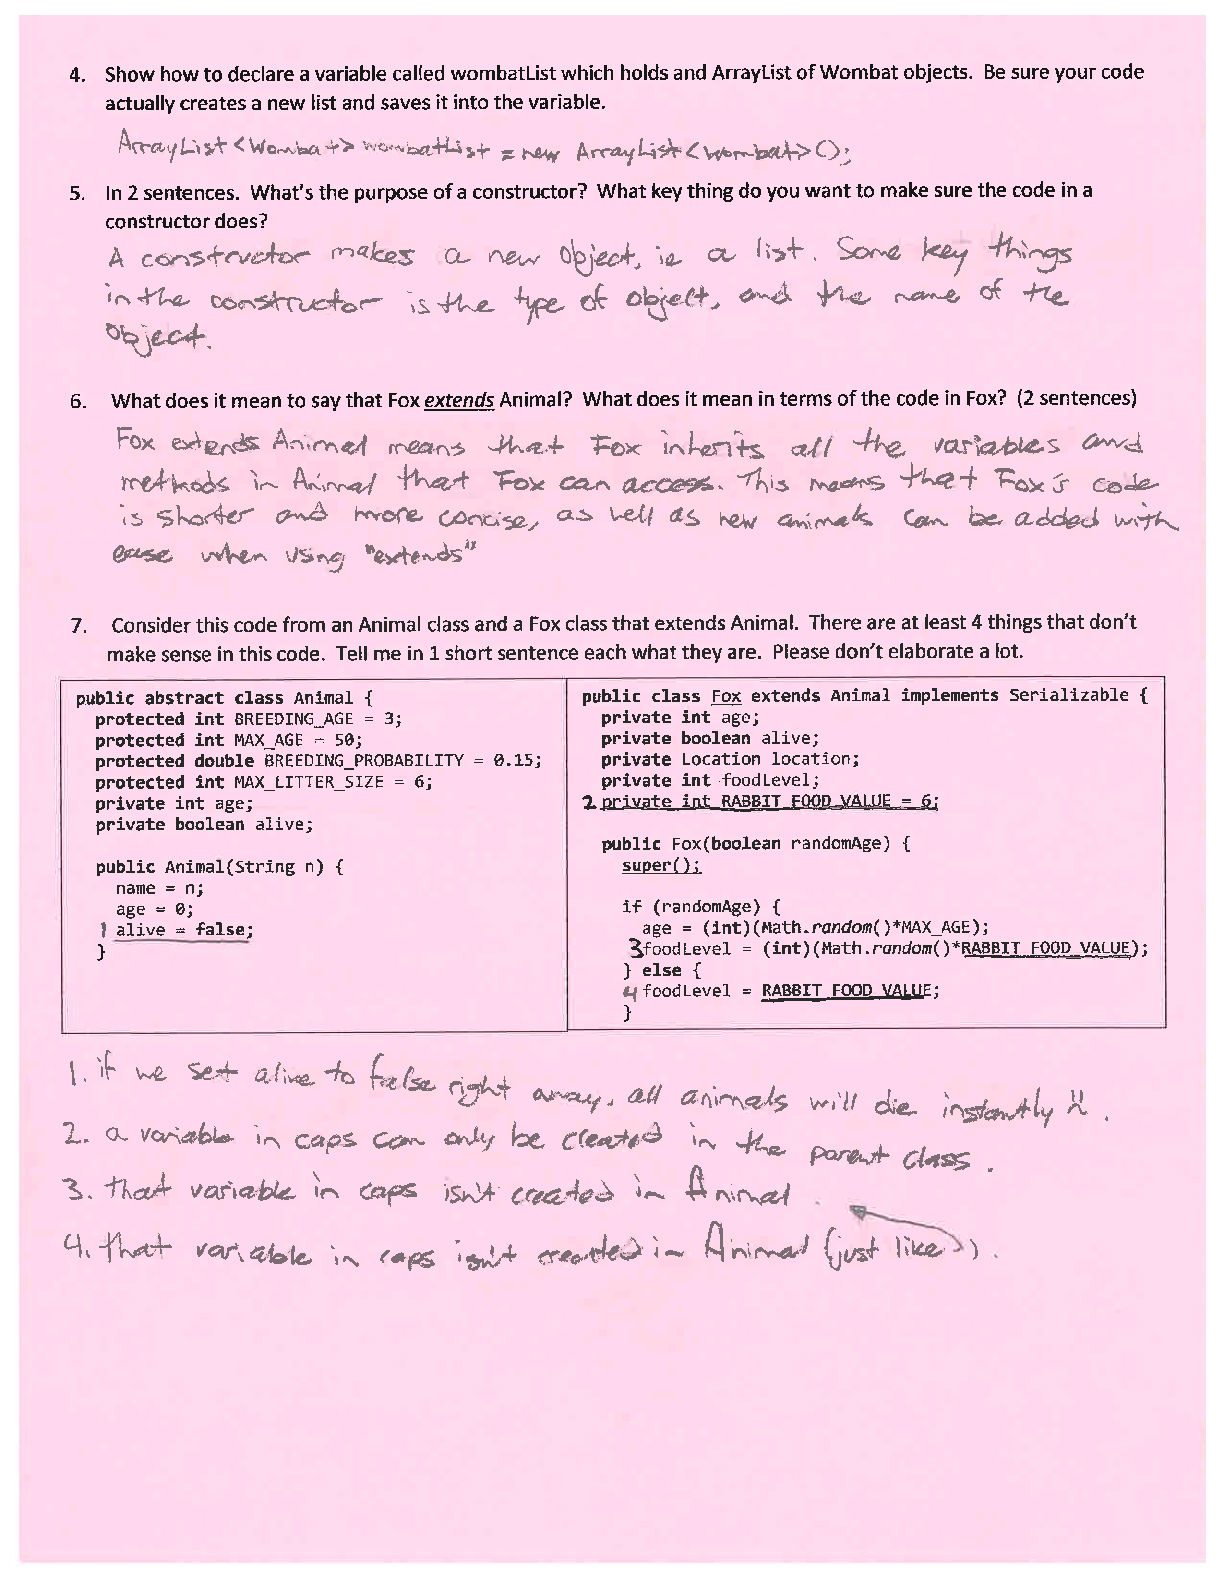 4. Show how to declare a variable called wombatList which holds and ArrayList of Wombat objects. Be sure your code
actually creates a new list and saves it into the variable.
ArrayList<Wombat> wombatList = new ArrayList<Wombat>();
5. In 2 sentences. What's the purpose of a constructor? What key thing do you want to make sure the code in a
constructor does?
A constructor makes a new object, ie a list. Some key things
in the constructor is the type of object, and the name of the
object.
6. What does it mean to say that Fox extends Animal? What does it mean in terms of the code in Fox? (2 sentences)
Fox extends Animal means that Fox inherits all the variables and
methods in Animal that Fox can access. This means that Fox's code
is shorter and more concise, as well as new animals can be added with
ease when using "extends"
7. Consider this code from an Animal class and a Fox class that extends Animal. There are at least 4 things that don't
make sense in this code. Tell me in 1 short sentence each what they are. Please don't elaborate a lot.
public abstract class Animal {
protected int BREEDING_AGE = 3;
protected int MAX_AGE = 50;
protected double BREEDING_PROBABILITY = 0.15;
protected int MAX_LITTER_SIZE = 6;
private int age;
private boolean alive;
public Animal(String n) {
name = n;
age = 0;
1 alive = false;
}
public class Fox extends Animal implements Serializable {
private int age;
private boolean alive;
private Location location;
private int foodLevel;
2 private int RABBIT_FOOD_VALUE = 6;
public Fox(boolean randomAge) {
super();
if (randomAge) {
age = (int)(Math.random()*MAX_AGE);
3 foodLevel = (int)(Math.random()*RABBIT_FOOD_VALUE);
} else {
4 foodLevel = RABBIT_FOOD_VALUE;
}
1. if we set alive to false right away, all animals will die instantly
2. a variable in caps can only be created in the parent class.
3. that variable in caps isn't created in Animal.
4. that variable in caps isn't created in Animal (just like 3).